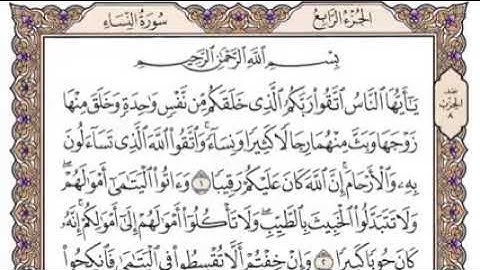 سُورَةُ النِّسَاءِ
الجُزْءُ الرَّابِعُ
بِسْمِ اللَّهِ الرَّحْمَٰنِ الرَّحِيمِ
يَٰٓأَيُّهَا النَّاسُ اتَّقُوا رَبَّكُمُ الَّذِي خَلَقَكُم مِّن نَّفْسٍ وَٰحِدَةٍ وَخَلَقَ مِنْهَا
زَوْجَهَا وَبَثَّ مِنْهُمَا رِجَالًا كَثِيرًا وَنِسَآءً ۚ وَاتَّقُوا اللَّهَ الَّذِي تَسَآءَلُونَ
بِهِۦ وَالْأَرْحَامَ ۚ إِنَّ اللَّهَ كَانَ عَلَيْكُمْ رَقِيبًا ١ وَءَاتُوا الْيَتَٰمَىٰٓ أَمْوَٰلَهُمْ ۖ
وَلَا تَتَبَدَّلُوا الْخَبِيثَ بِالطَّيِّبِ ۖ وَلَا تَأْكُلُوٓا أَمْوَٰلَهُمْ إِلَىٰٓ أَمْوَٰلِكُمْ ۚ إِنَّهُۥ
كَانَ حُوبًا كَبِيرًا ٢ وَإِنْ خِفْتُمْ أَلَّا تُقْسِطُوا فِي الْيَتَٰمَىٰ فَانكِحُوا
نصف
الحزب
٨